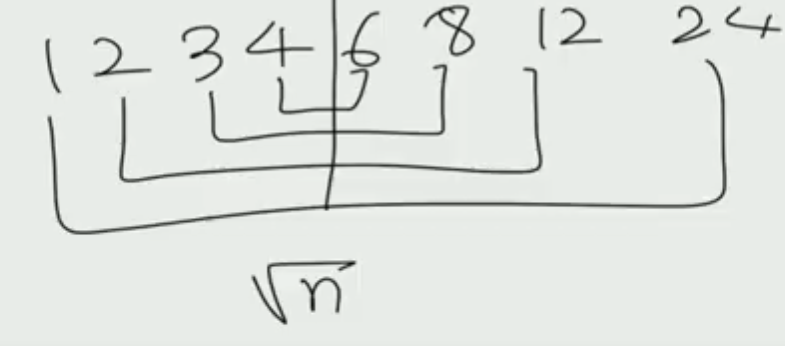 1 2 3 4 6 8 12 24
√n